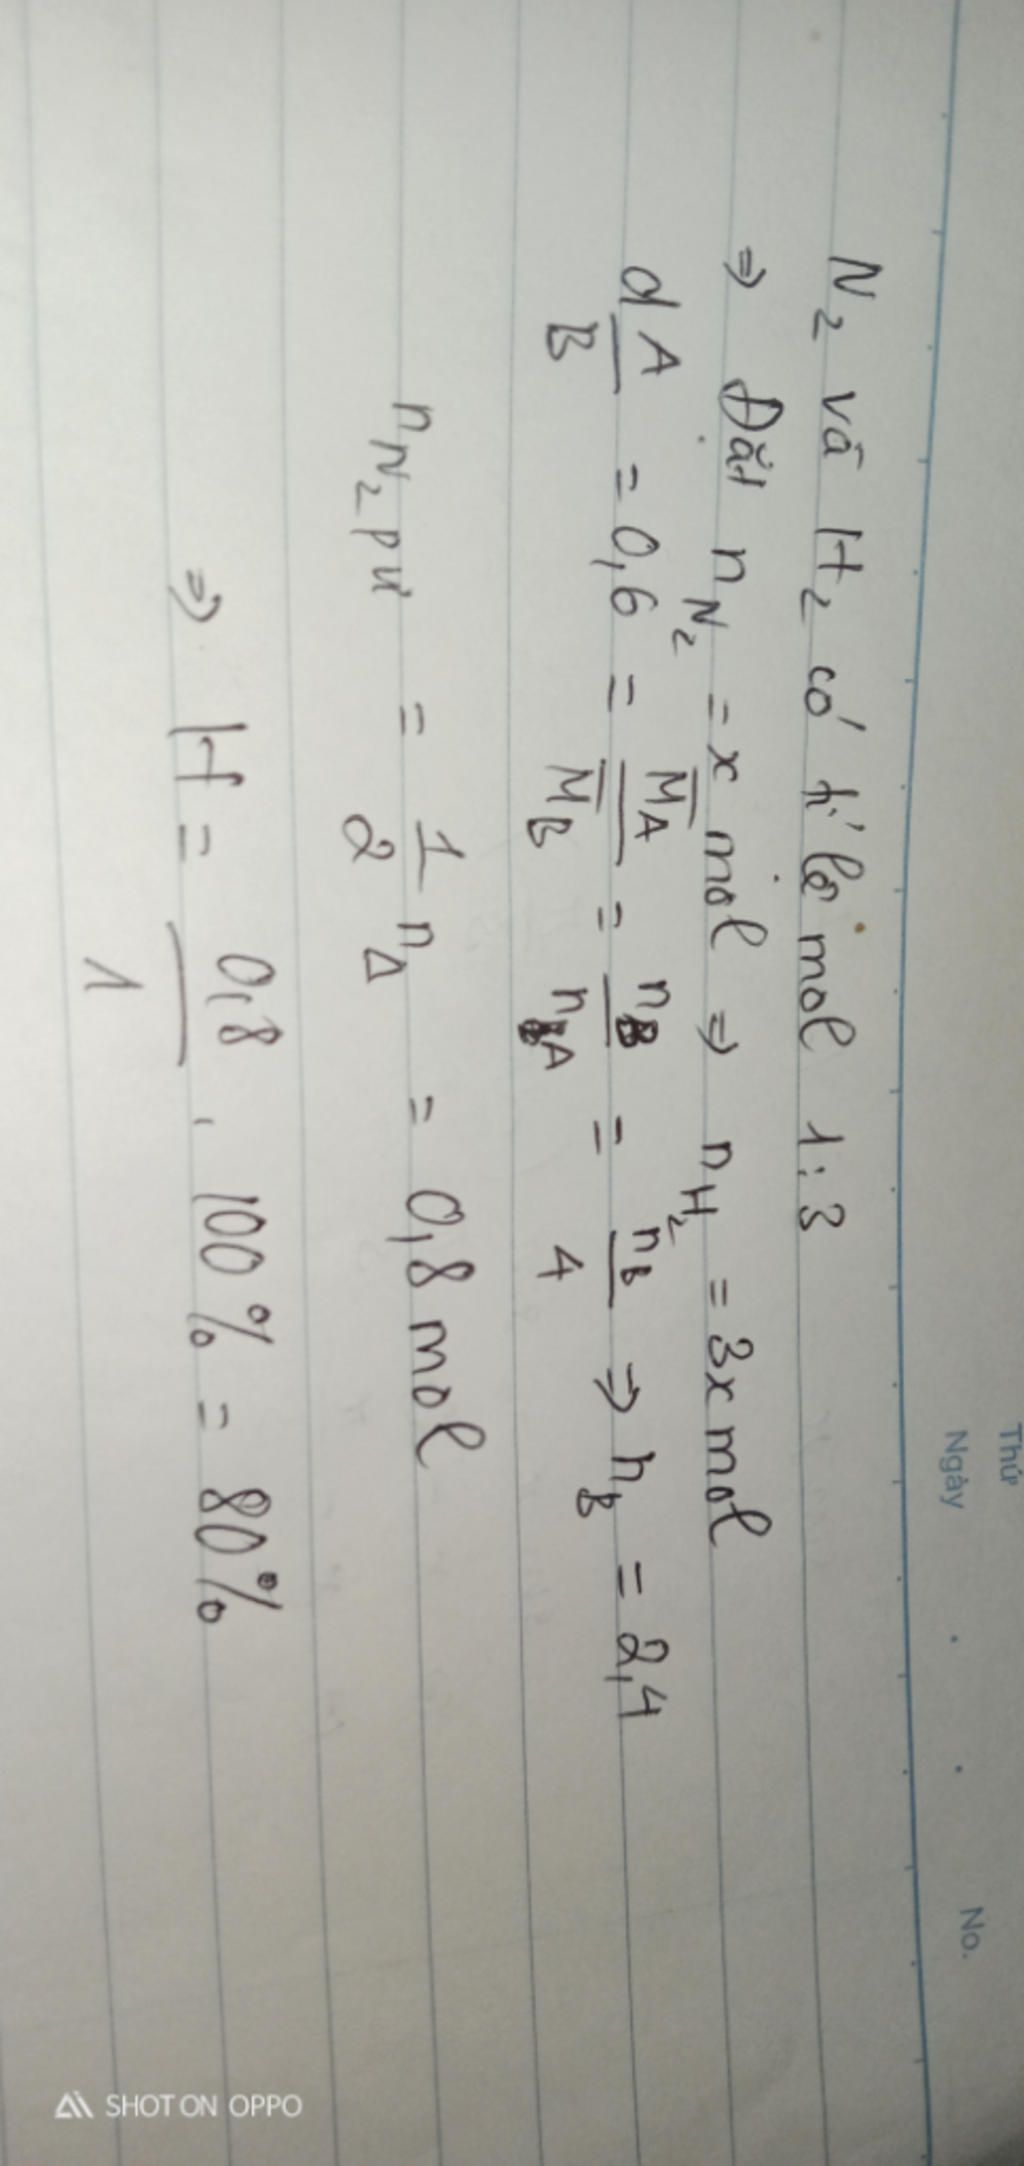 Thứ
Ngày . . No.
N2 và H2 có tỉ lệ mol 1:3
⇒ Đặt nN2 = x mol ⇒ nH2 = 3x mol
d A/B = 0,6 = M̅A/M̅B = nB/nA = nB/4 ⇒ nB = 2,4
nN2 pư = 1/2 nΔ = 0,8 mol
⇒ H = 0,8/1 . 100% = 80%
SHOT ON OPPO